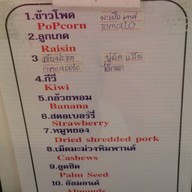 1.ข้าวโพด มะเขือเทศ
PoPcorn tomato
2.ลูกเกด
Raisin
3
pineapple
4.กีวี
Kiwi
5.กล้วยหอม
Banana
6.สตอเบอร์รี่
Strawberry
7.หมูหยอง
Dried shredded pork
8.เม็ดมะม่วงหิมพานต์
Cashews
9.ลูกชิด
Palm Seed
10.อัลมอนด์
Almonds